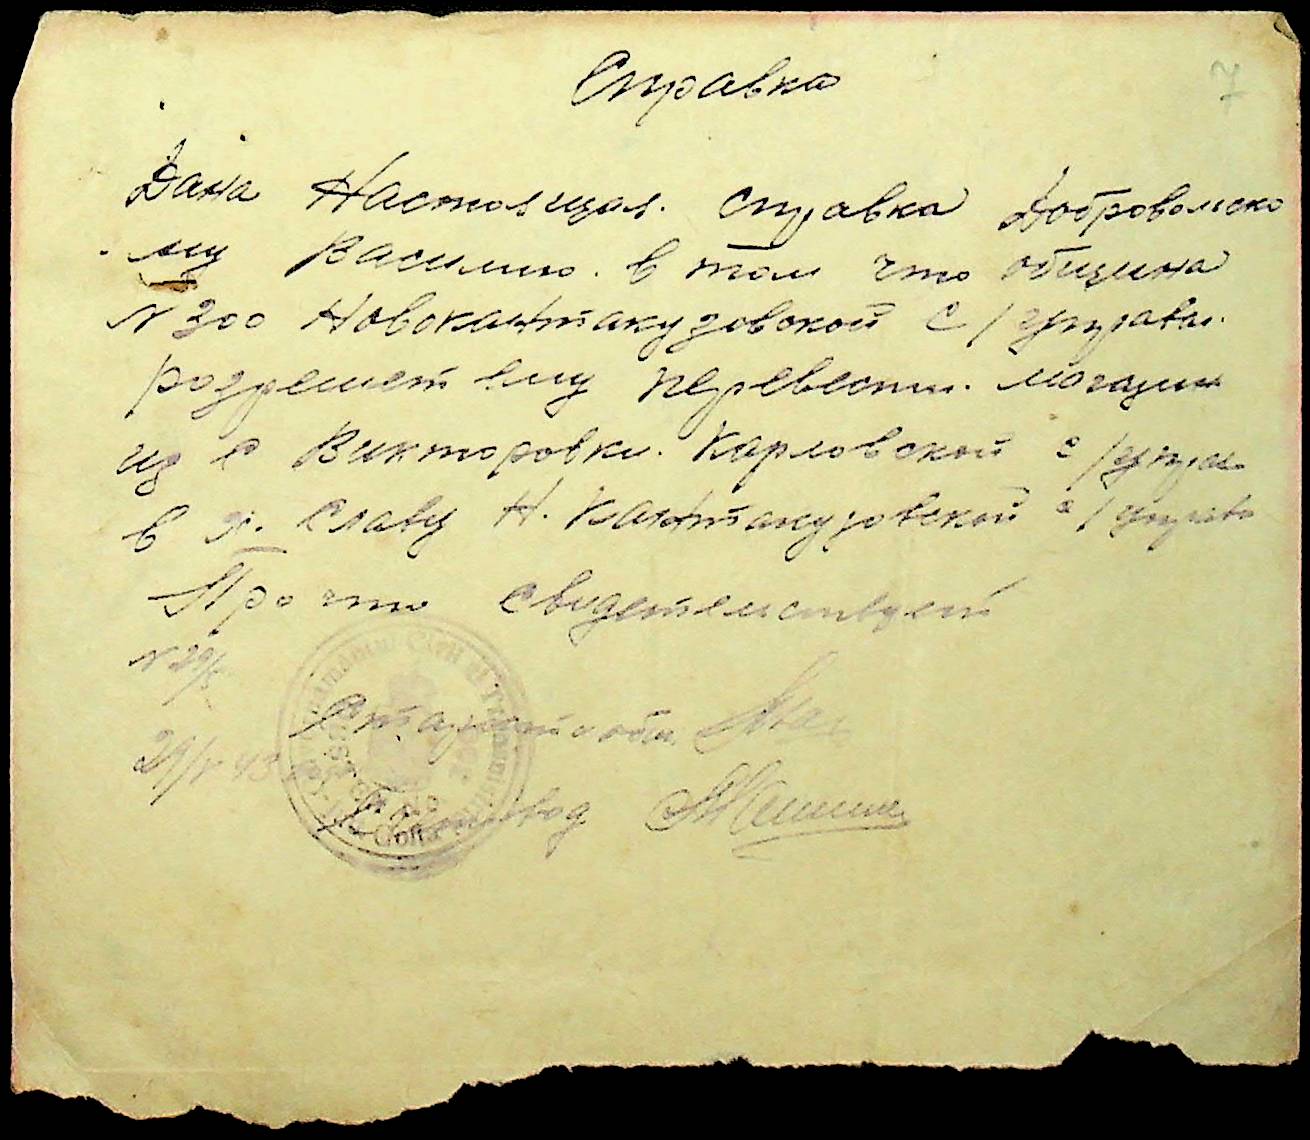 7
Справка
Дана Настоящая. справка Добровольско
му Василию. в том что община
N 300 Новокантакузовской с/управы.
розрешает ему перевести. магазин
из с Викторовки. Карловской с/упра
в х. Славу Н. Кантакузовской с/управ
Про что свидетельствует
N 29/5
29/V 43
Староста общ.
Счетовод